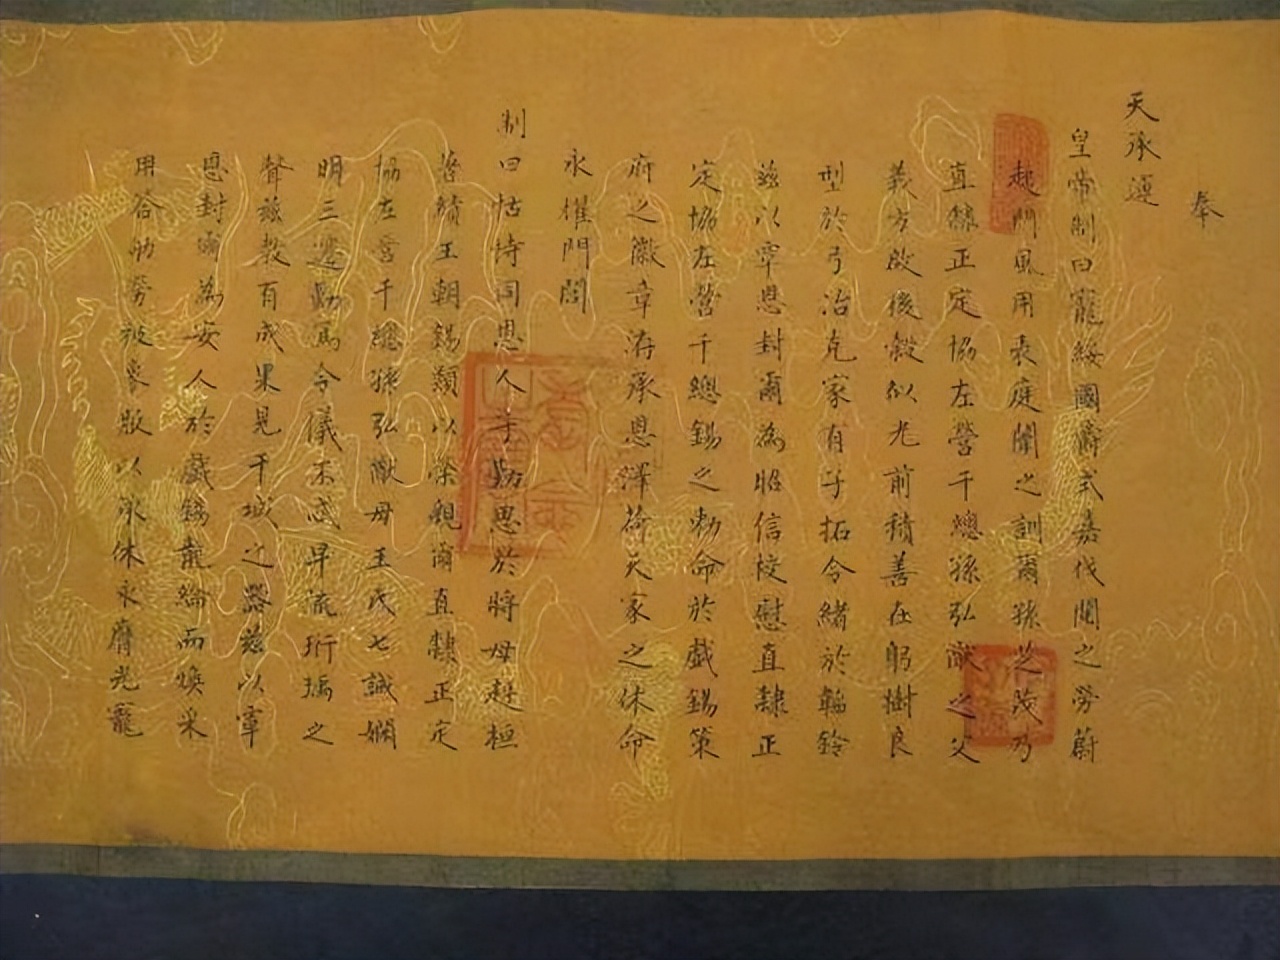 奉
天承運
皇帝制曰寵綏國爵式嘉伐閱之勞蔚
起門風用表庭闈之訓爾孫芝茂乃
直隸正定協左營千總孫弘猷之父
義方啟後穀似光前積善在躬樹良
型於弓冶克家有子拓令緒於韜鈐
茲以覃恩封爾為昭信校慰直隸正
定協左營千總錫之勅命於戲錫策
府之徽章洊承恩澤荷天家之休命
永櫂門閭
制曰怙恃同恩人子勤思於將母赳桓
著績王朝錫類以榮親爾直隸正定
協左營千總孫弘猷母王氏七誡嫻
明三遷勤篤令儀不忒早流珩瑀之
聲茲教有成果見干城之器茲以覃
恩封爾為安人於戲錫龍綸而煥采
用答劬勞被象服以承休永膺光寵